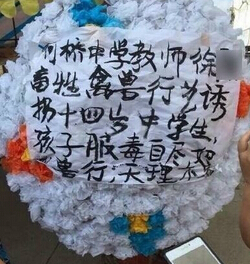 河桥中学教师徐
畜牲禽兽行为诱
拐十四岁中学生,
孩子服毒自尽
兽行,天理不容